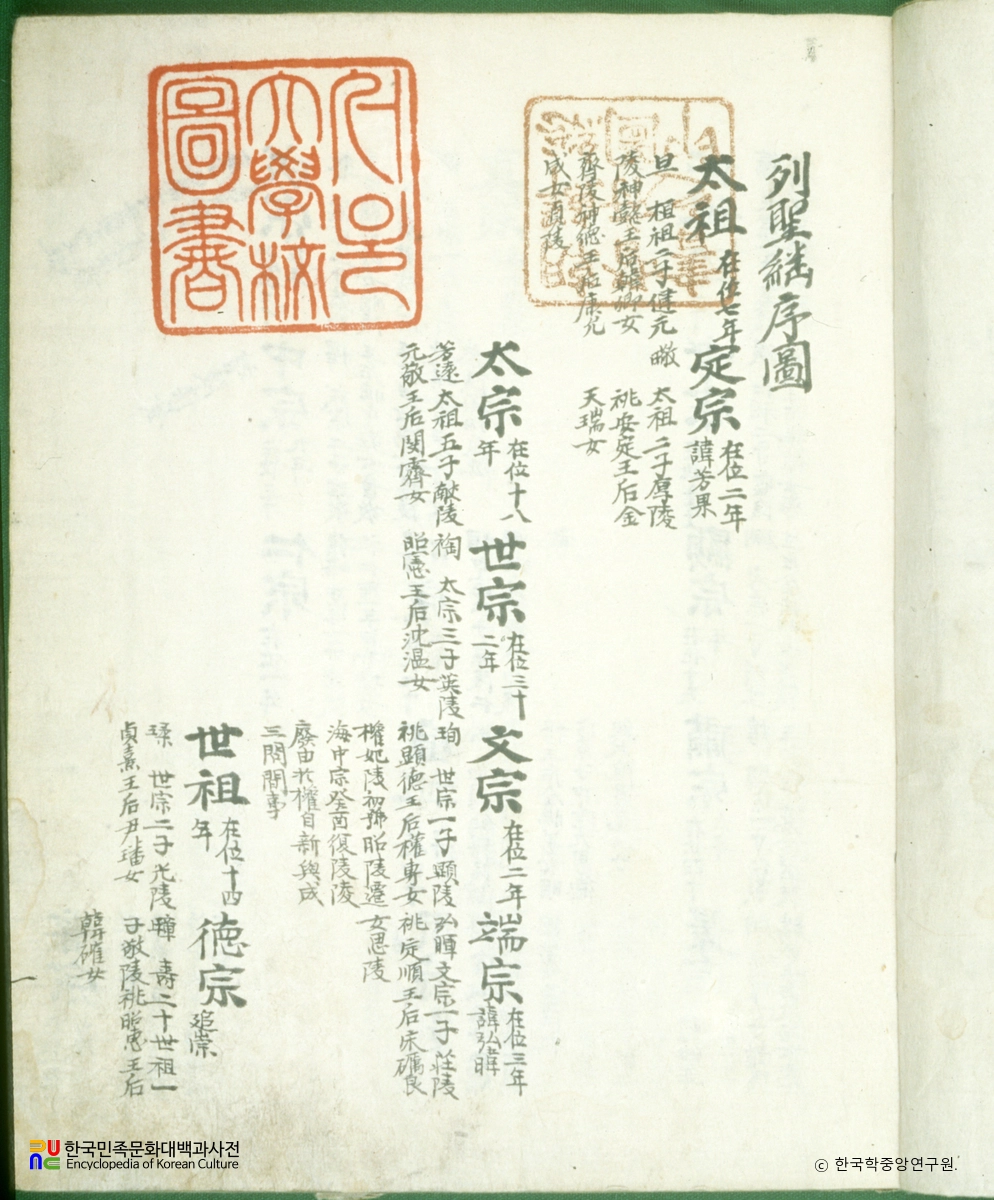 列聖繼序圖
太祖 在位七年
旦 桓祖二子健元
陵神懿王后韓卿女
齊陵神德王后康允
成女貞陵
定宗 在位二年
諱芳果
曔 太祖二子厚陵
祧安定王后金
天瑞女
太宗 在位十八
年
芳遠太祖五子献陵
元敬王后閔霽女
世宗 在位三十
二年
祹 太宗三子英陵
昭憲王后沈温女
文宗 在位二年
珦 世宗一子顯陵
祧顯德王后權專女
權妃陵初號昭陵遷
海中宗癸酉復陵陵
廢由於權自新與成
三問間事
端宗 在位三年
諱弘暐
弘暉文宗一子莊陵
祧定順王后宋礪良
女思陵
世祖 在位十四
年
瑈 世宗二子光陵
貞熹王后尹璠女
德宗 追崇
暲 壽二十世祖一
子敬陵祧昭惠王后
韓確女
大學校
圖書
한국민족문화대백과사전
Encyclopedia of Korean Culture
© 한국학중앙연구원.